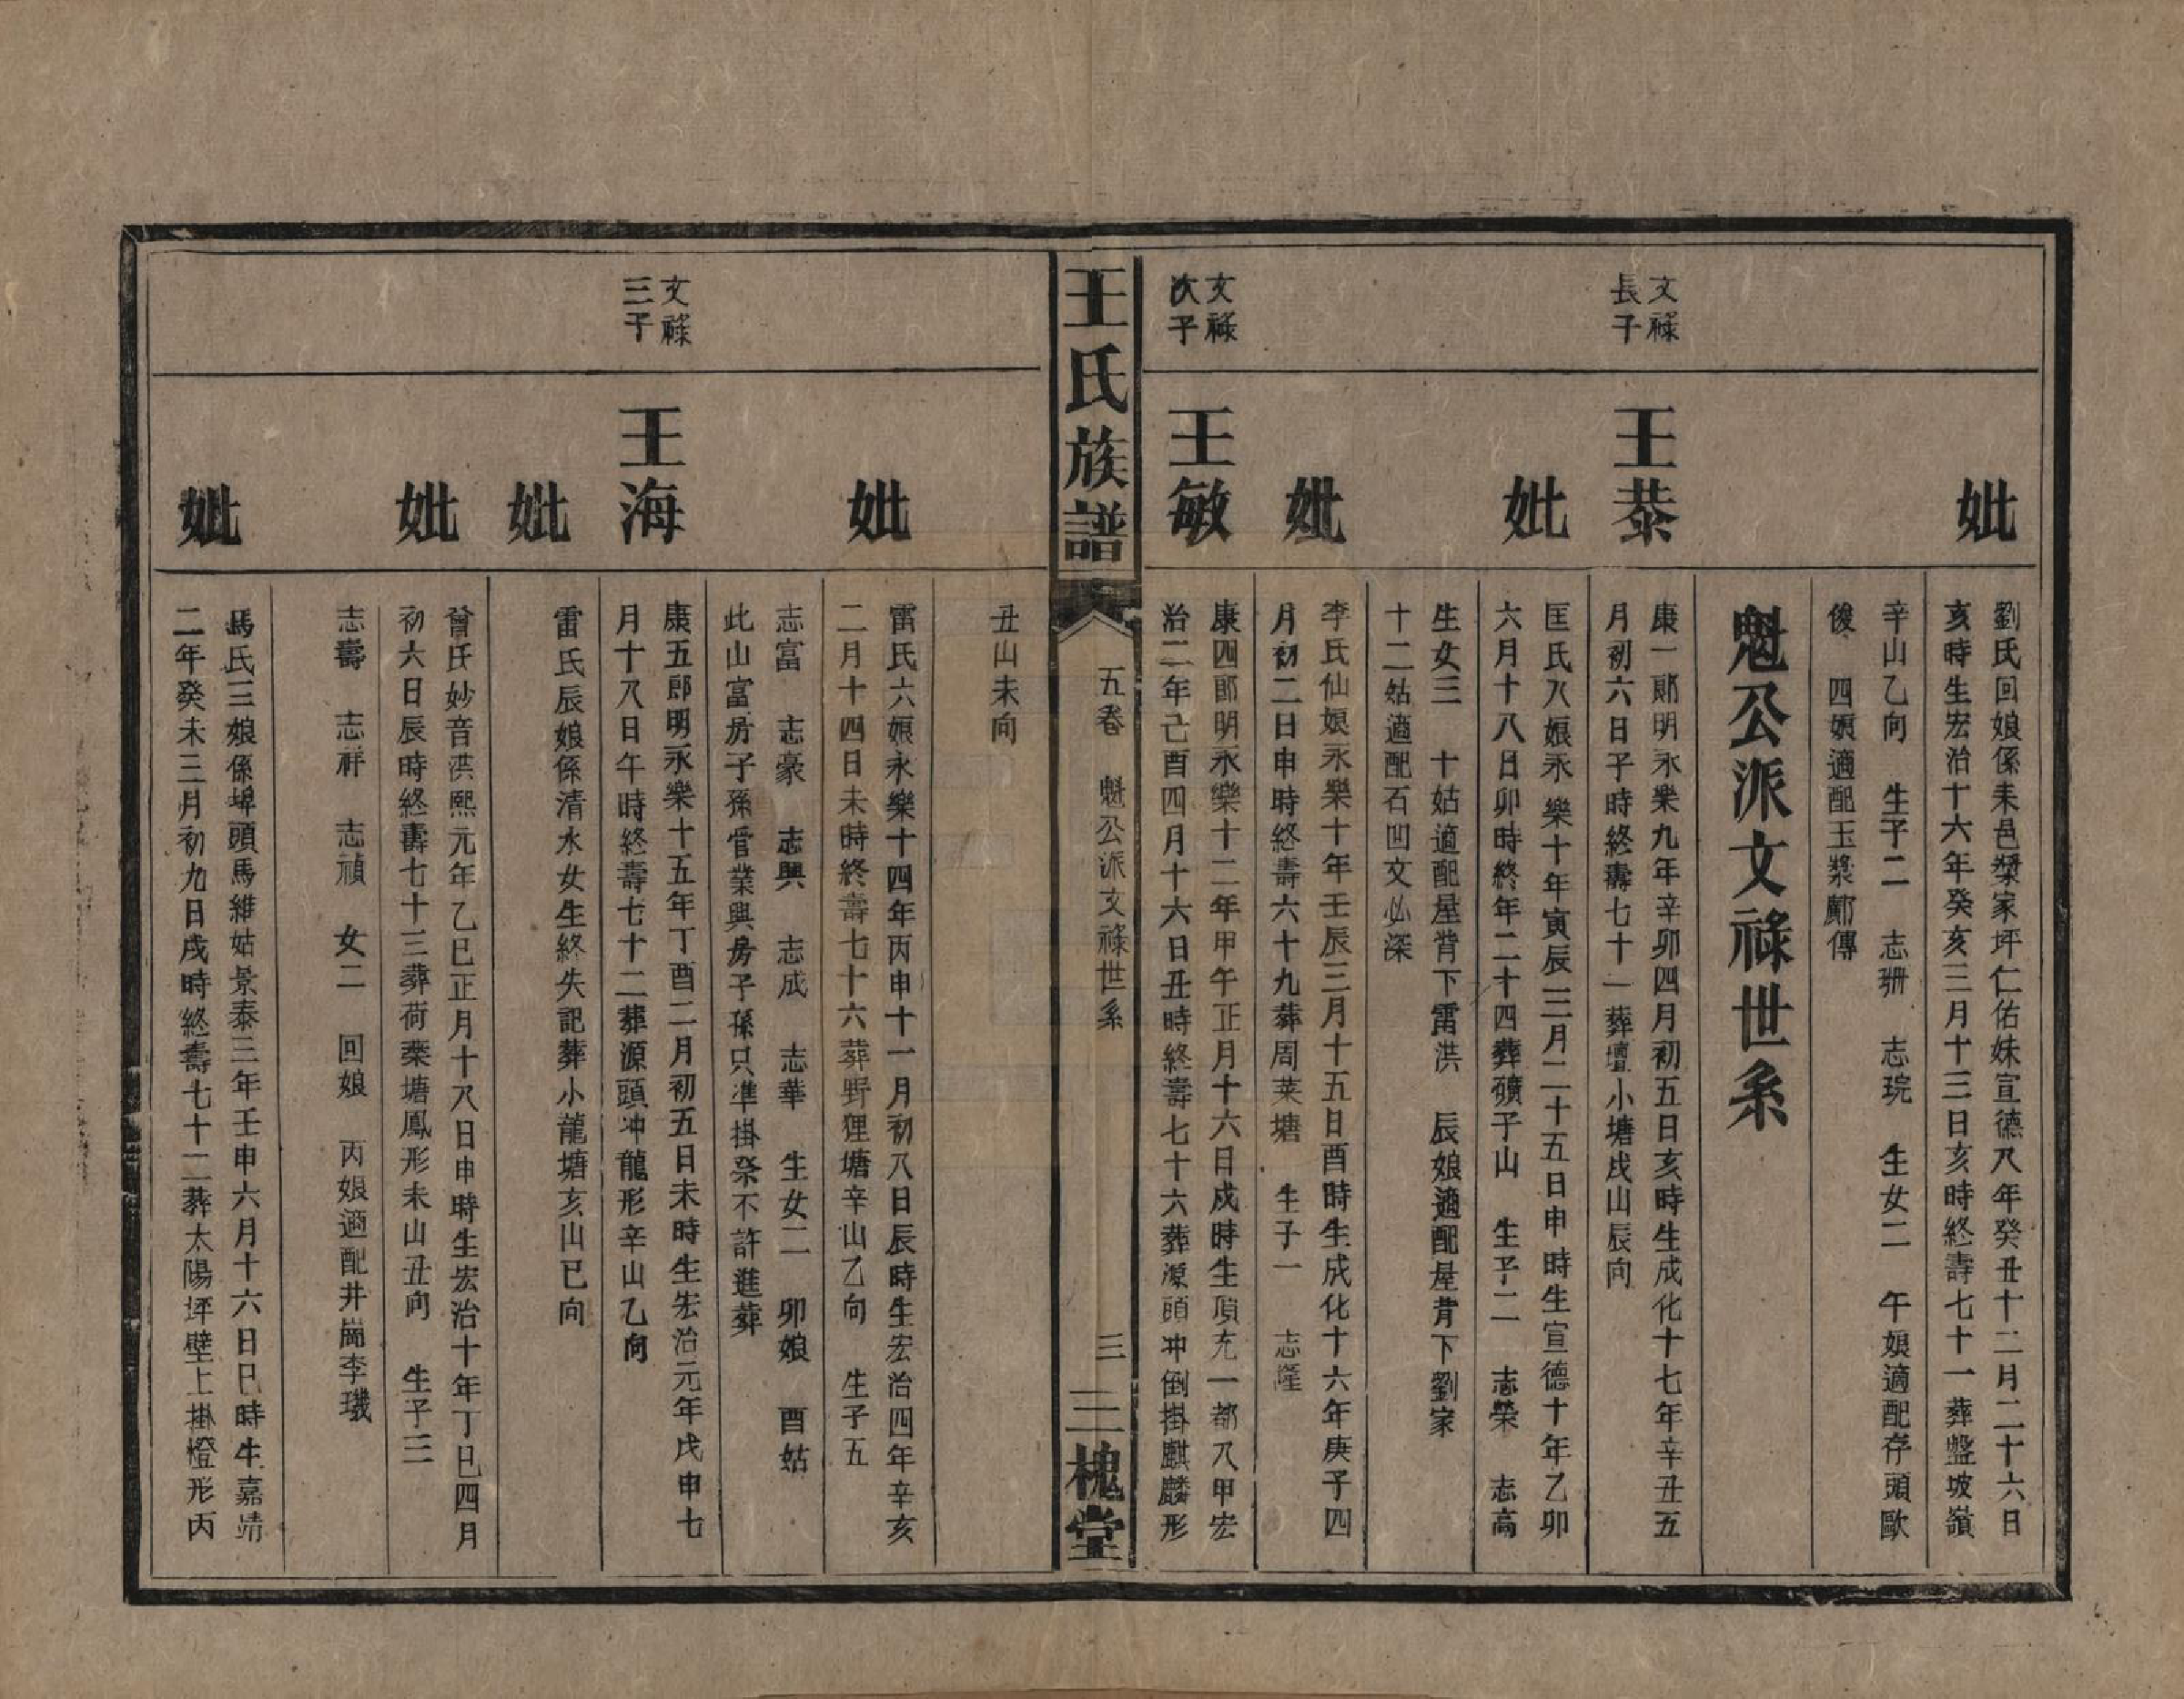 妣
劉氏回娘係耒邑槳家坪仁佑妹宣德八年癸丑十二月二十六日
亥時生宏治十六年癸亥三月十三日亥時終壽七十一葬盤坡嶺
辛山乙向　生子二　志珊　志琓　生女二　午娘適配存頭歐
俊　四娘適配玉漿鄺傳
魁公派文祿世系
文祿
長子
王㤗
康一郎明永樂九年辛卯四月初五日亥時生成化十七年辛丑五
月初六日子時終壽七十一葬壇小塘戌山辰向
妣
匡氏八娘永樂十年寅辰三月二十五日申時生宣德十年乙卯
六月十八日卯時終年二十四葬礦子山　生子二　志榮　志高
生女三　十姑適配屋背下雷洪　辰娘適配屋背下劉家
十二姑適配石凹文必深
妣
李氏仙娘永樂十年壬辰三月十五日酉時生成化十六年庚子四
月初二日申時終壽六十九葬周菜塘　生子一　志隆
文祿
次子
王敏
康四郎明永樂十二年甲午正月十六日戍時生頂充一都八甲宏
治二年己酉四月十六日丑時終壽七十六葬源頭冲倒掛麒麟形
王氏族譜
五卷　魁公派文祿世系
三
三槐堂
丑山未向
妣
雷氏六娘永樂十四年丙申十一月初八日辰時生宏治四年辛亥
二月十四日未時終壽七十六葬野狸塘辛山乙向　生子五
志富　志豪　志興　志成　志華　生女二　卯娘　酉姑
此山富房子孫管業興房子孫只準掛祭不許進葬
文祿
三子
王海
康五郎明永樂十五年丁酉二月初五日未時生宏治元年戊申七
月十八日午時終壽七十二葬源頭冲龍形辛山乙向
妣
雷氏辰娘係清水女生終失記葬小龍塘亥山巳向
妣
曾氏妙音洪熙元年乙巳正月十八日申時生宏治十年丁巳四月
初六日辰時終壽七十三葬荷葉塘鳳形未山丑向　生子三
志壽　志祥　志禎　女二　回娘　丙娘適配井崗李璣
妣
馬氏三娘係埠頭馬維姑景泰三年壬申六月十六日巳時生嘉靖
二年癸未三月初九日戌時終壽七十二葬太陽坪壁上掛燈形丙